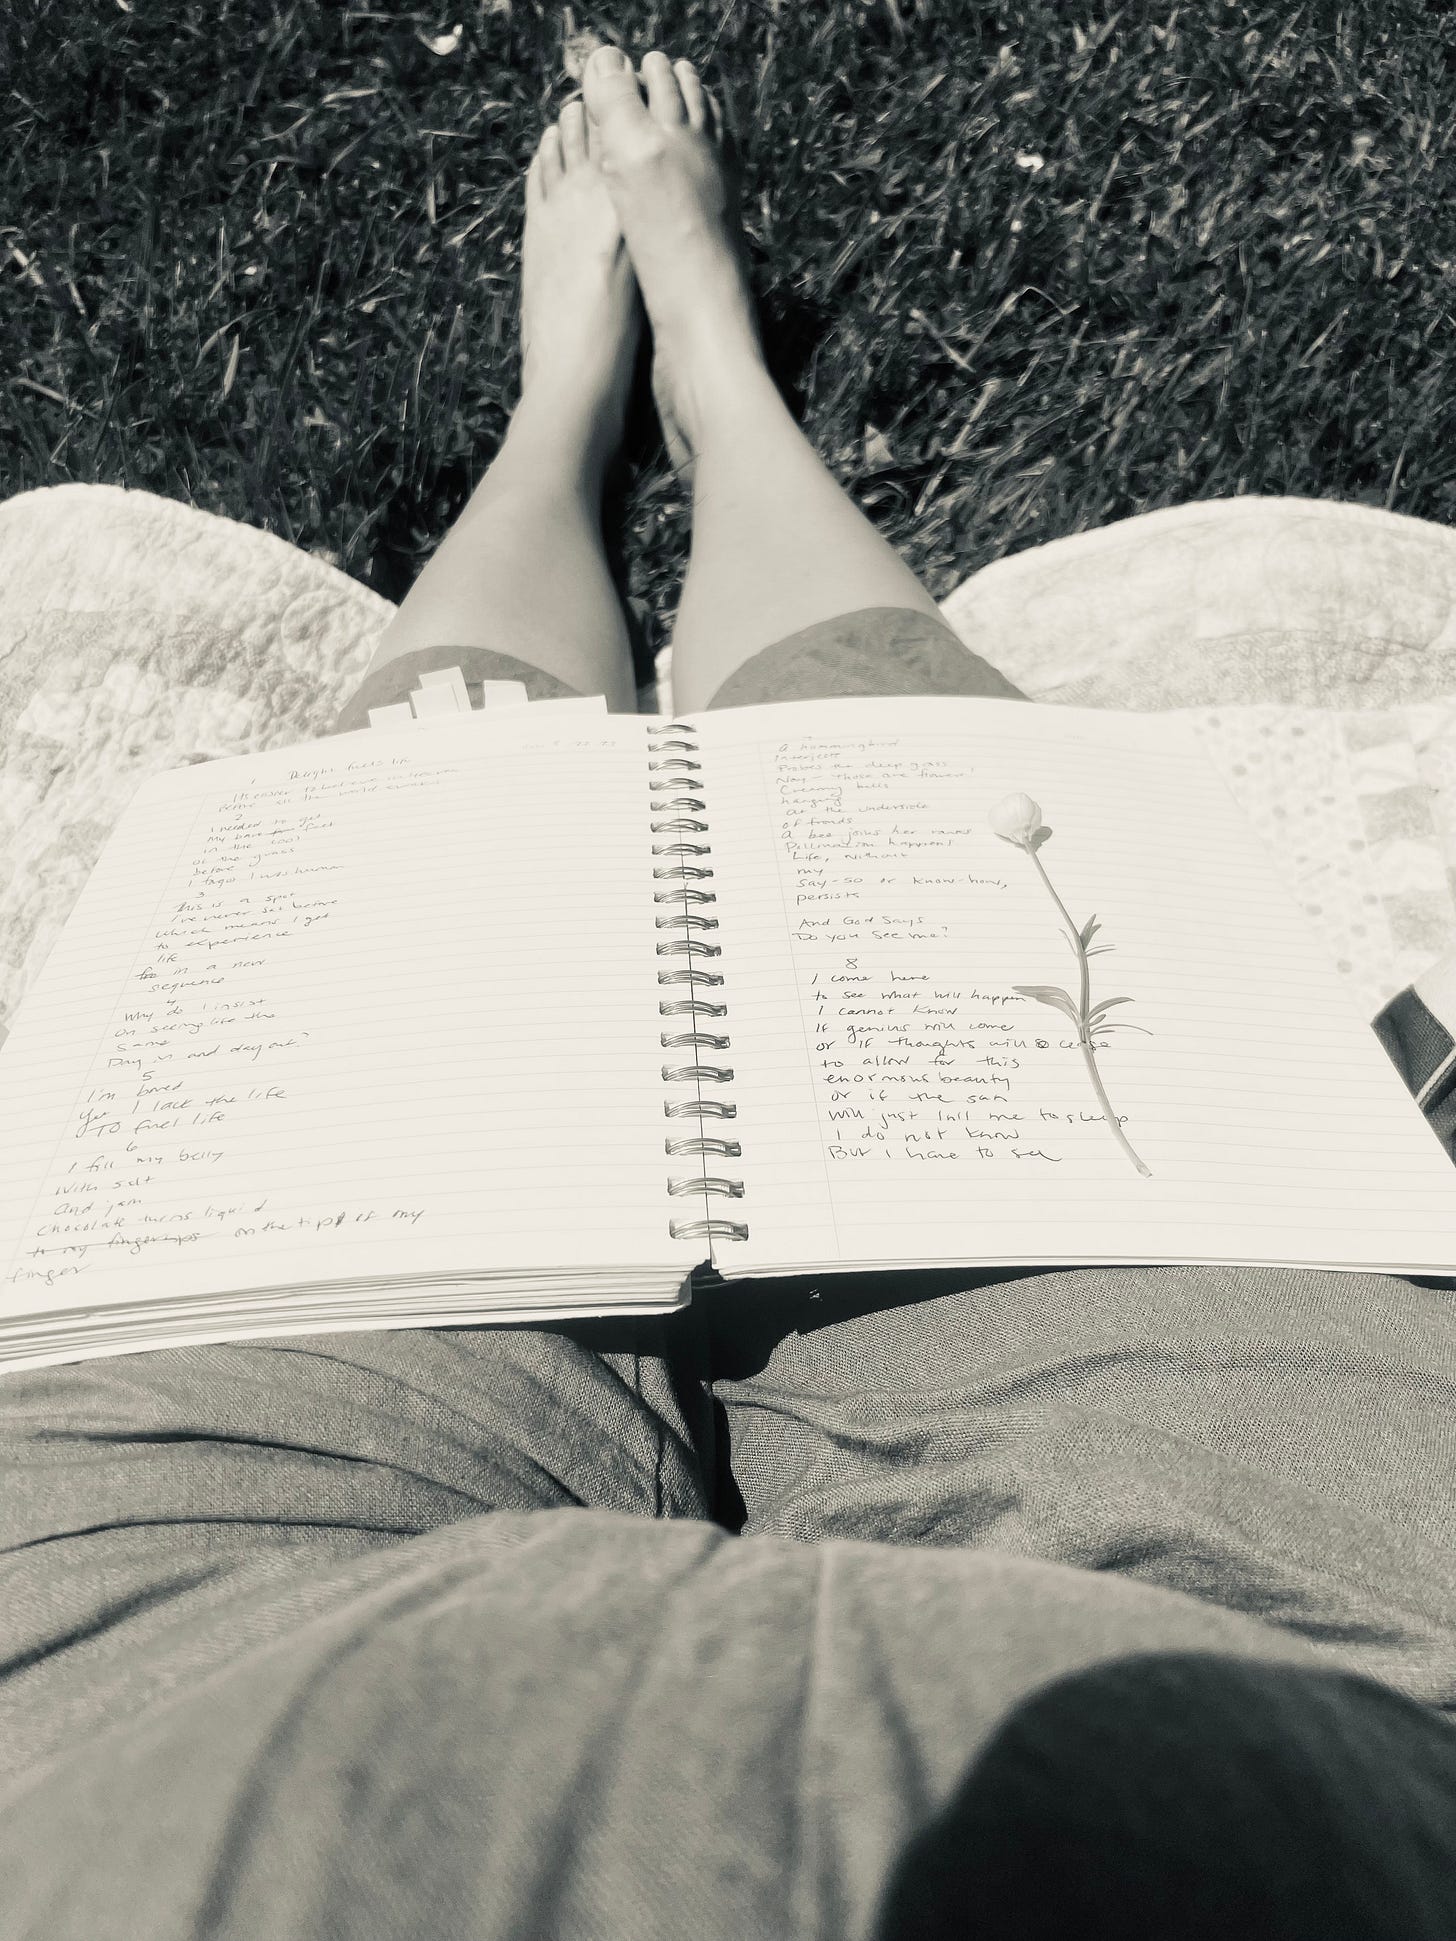 1 Delight fuels life
It's easier to believe in Heaven
Before all the world awakes
2
I needed to get
My bare feet
in the cool
of the grass
before
I forgot I was human
3
This is a spot
I've never sat before
which means I get
to experience
life
in a new
sequence
4
Why do I insist
on seeing life the
same
Day in and day out?
5
I'm bored
Yet I lack the life
To fuel life
6
I fill my belly
with salt
And jam
Chocolate turns liquid
to my fingertips on the tip of my
finger
A hummingbird
Interjects
Probes the deep grass
Nay - those are flowers!
Creamy bells
hanging
at the underside
of fronds
A bee joins her ranks
Pollination happens
Life, without
my
say-so or know-how,
persists
And God says
Do you see me?
8
I come here
to see what will happen
I cannot know
If genius will come
or if thoughts will cease
to allow for this
enormous beauty
or if the sun
will just lull me to sleep
I do not know
But I have to see